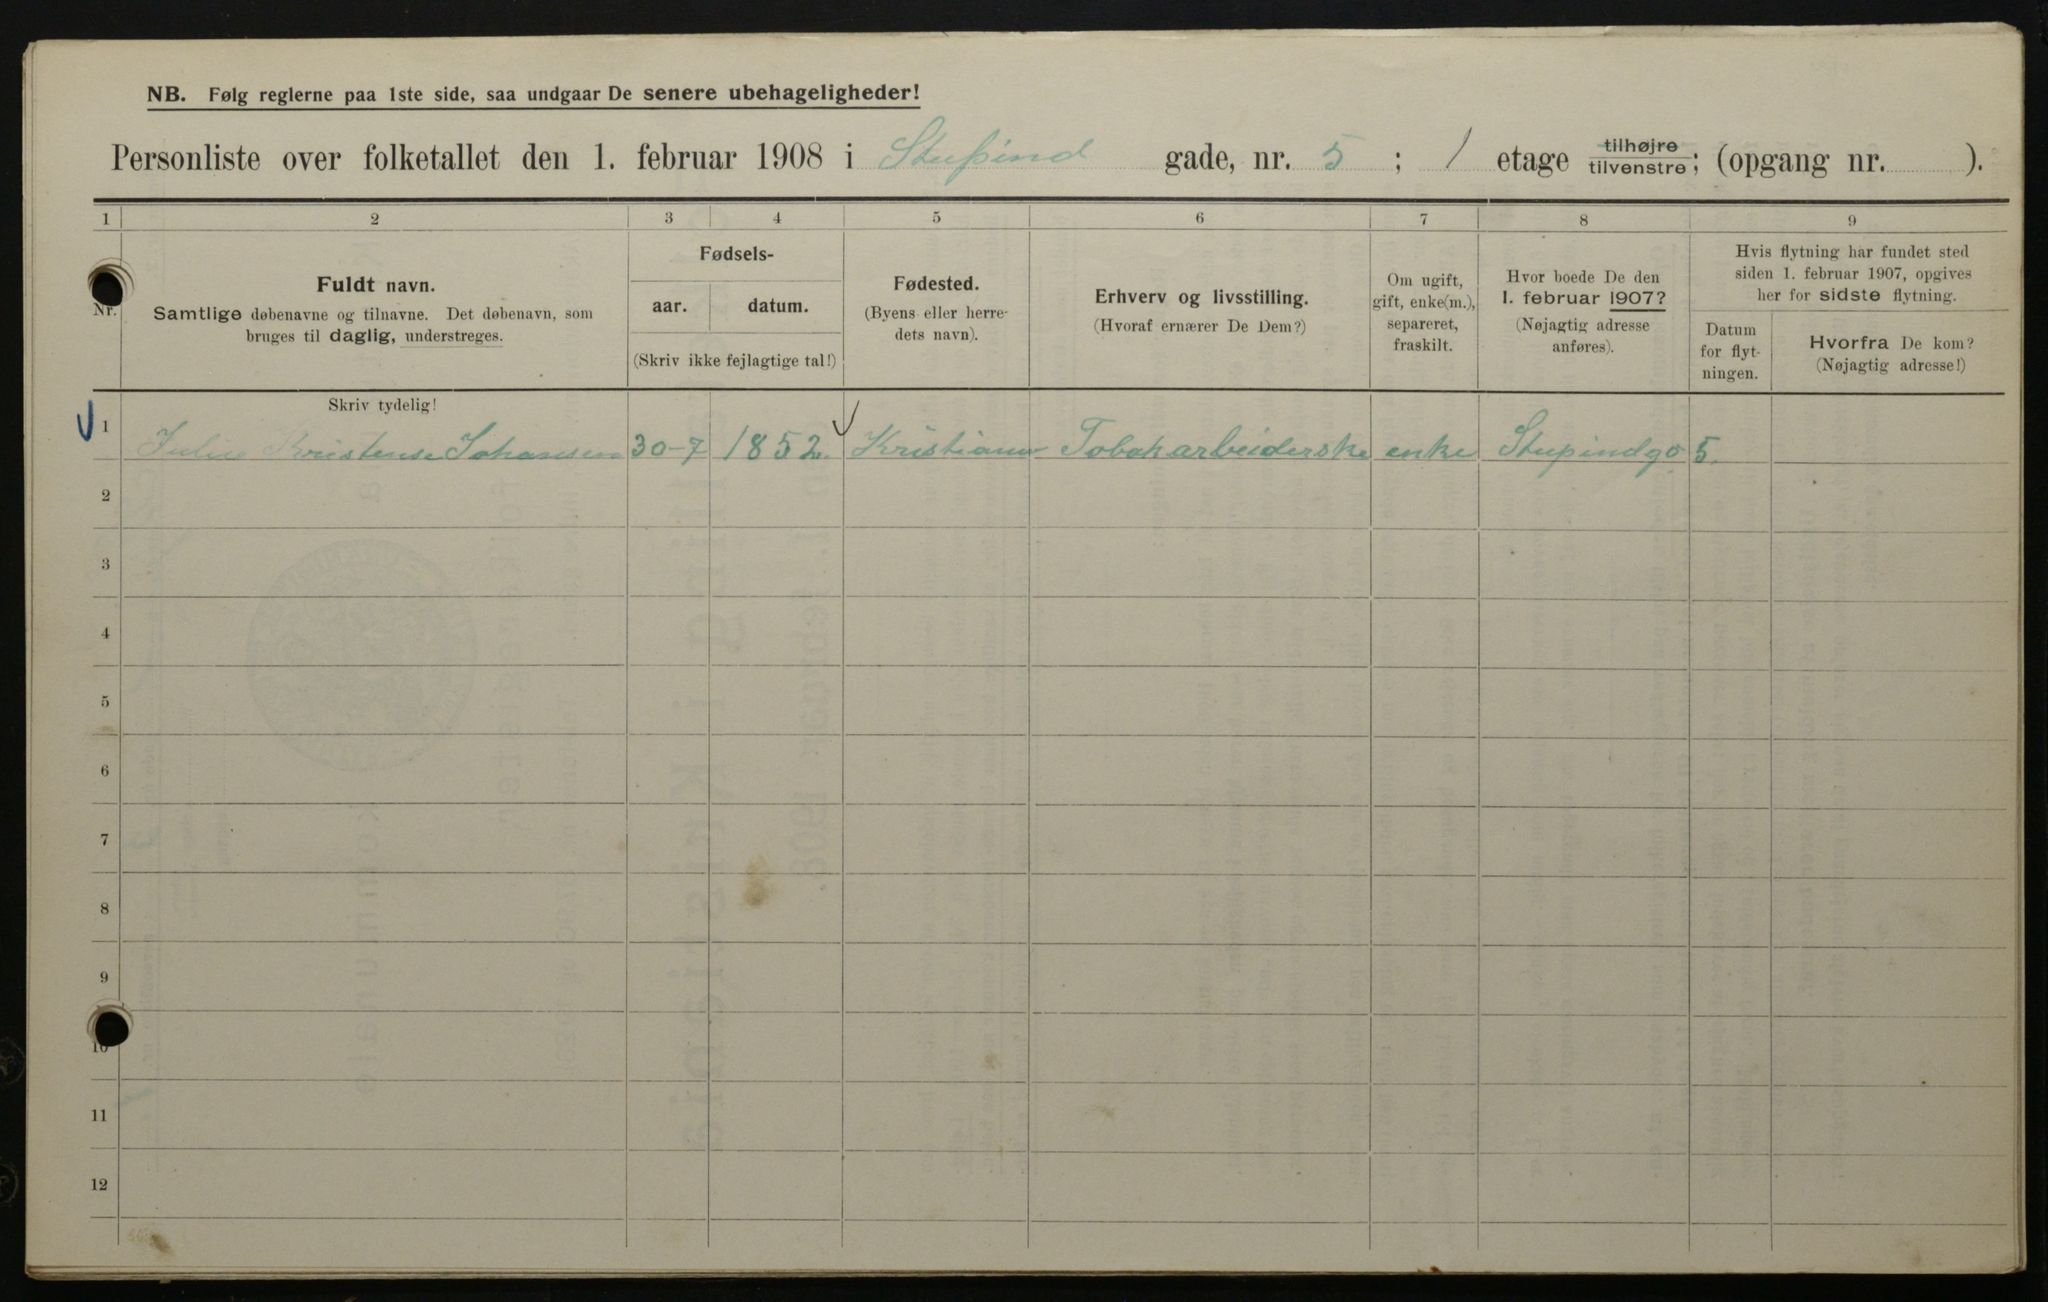 NB. Følg reglerne paa 1ste side, saa undgaar De senere ubehageligheder!
Personliste over folketallet den 1. februar 1908 i Stupind gade, nr. 5 ; 1 etage tilhøjre tilvenstre; (opgang nr. ).
1 2 3 4 5 6 7 8 9
Nr.
Fuldt navn.
Samtlige døbenavne og tilnavne. Det døbenavn, som
bruges til daglig, understreges.
Fødsels-
aar. datum.
(Skriv ikke fejlagtige tal!)
Fødested.
(Byens eller herre-
dets navn).
Erhverv og livsstilling.
(Hvoraf ernærer De Dem?)
Om ugift,
gift, enke(m.),
separeret,
fraskilt.
Hvor boede De den
1. februar 1907?
(Nøjagtig adresse
anføres).
Hvis flytning har fundet sted
siden 1. februar 1907, opgives
her for sidste flytning.
Datum
for flyt-
ningen.
Hvorfra De kom?
(Nøjagtig adresse!)
Skriv tydelig!
1 Julie Kristense Johansen 30-7 1852. Kristiania Tobakarbeiderske enke Stupindga 5.
2
3
4
5
6
7
8
9
10
11
12